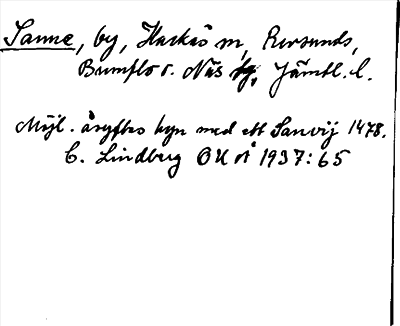 Sanne, by, Hackås sn, Revsunds,
Brunflo o. Näs tg, Jämtl. l.
Möjl. åsyftas byn med ett Sanvij 1478.
C. Lindberg OUÅ 1937:65